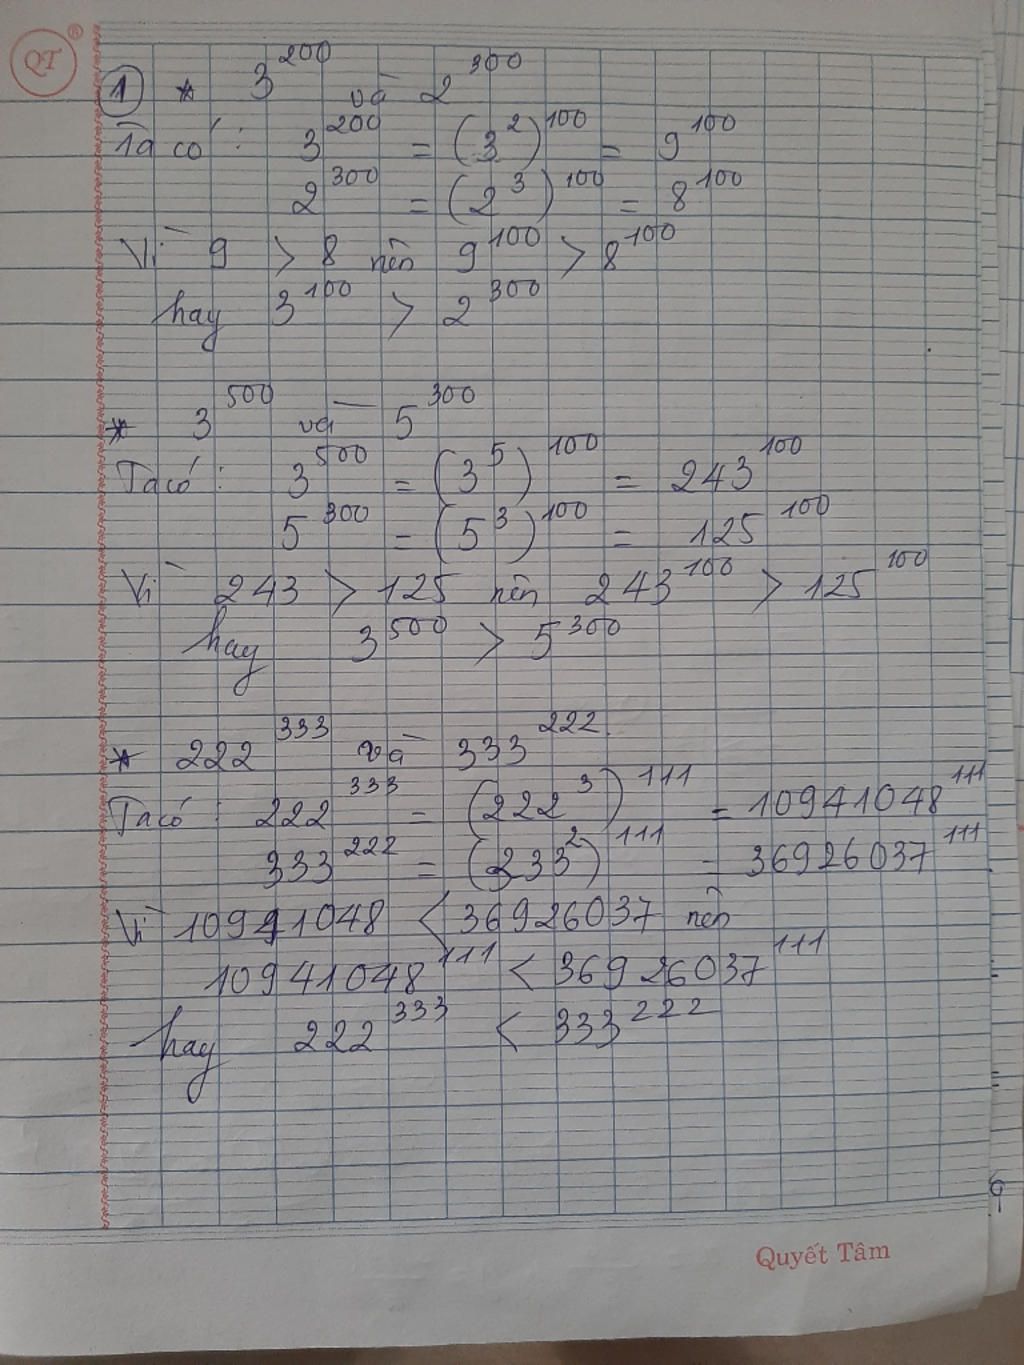 QT ®
① * 3^200 và 2^300
Ta có : 3^200 = (3^2)^100 = 9^100
2^300 = (2^3)^100 = 8^100
Vì 9 > 8 nên 9^100 > 8^100
hay 3^100 > 2^300
* 3^500 và 5^300
Ta có : 3^500 = (3^5)^100 = 243^100
5^300 = (5^3)^100 = 125^100
Vì 243 > 125 nên 243^100 > 125^100
hay 3^500 > 5^300
* 222^333 và 333^222
Ta có : 222^333 = (222^3)^111 = 10941048^111
333^222 = (333^2)^111 = 36926037^111
Vì 10941048 < 36926037 nên
10941048^111 < 36926037^111
hay 222^333 < 333^222
Quyết Tâm